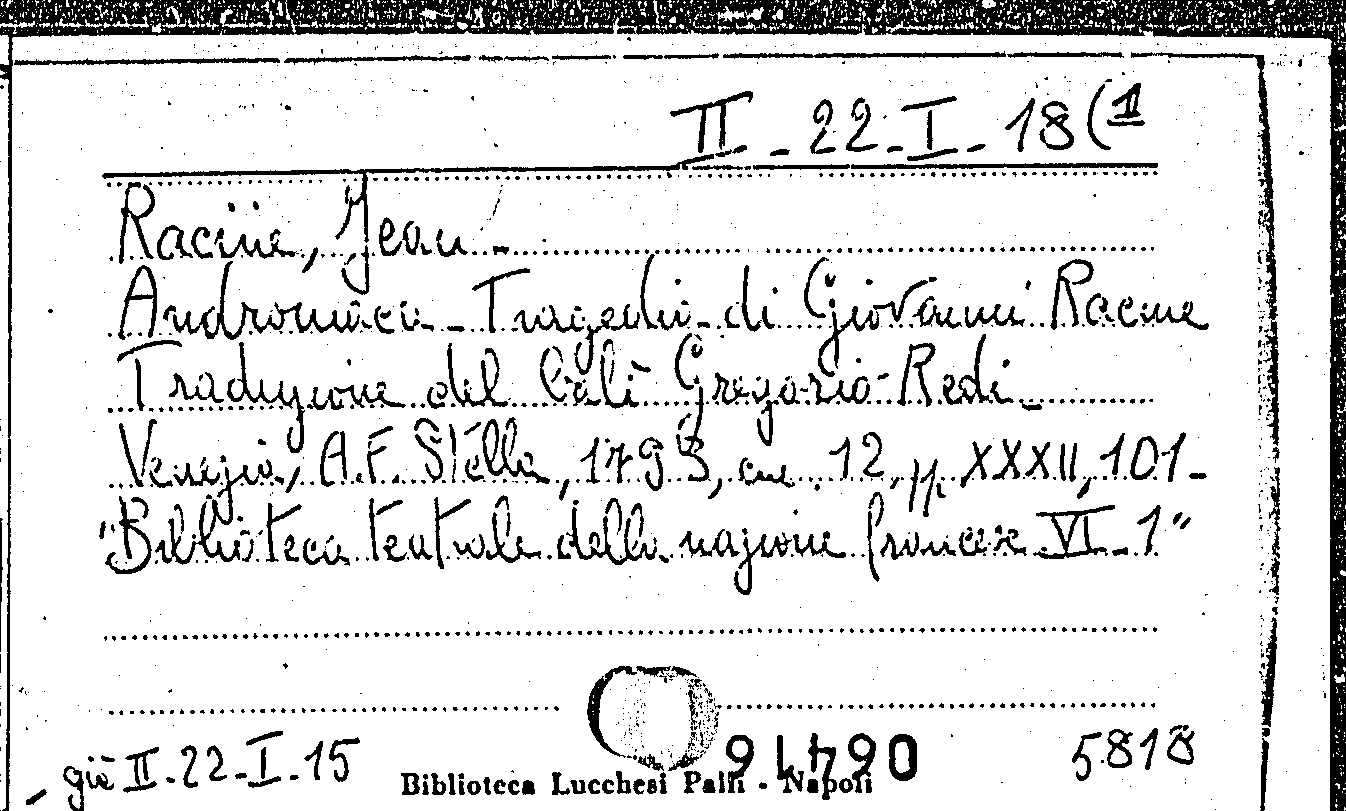 II - 22 - I - 18(1
Racine, Jean -
Andromaca - Tragedia di Giovanni Racine
Traduzione del Balì Gregorio Redi -
Venezia, A.F. Stella, 1793, cm. 12, pp. XXXII, 101 -
"Biblioteca teatrale della nazione francese VI - 1"
già II - 22 - I - 15
064716
5818
Biblioteca Lucchesi Palli - Napoli